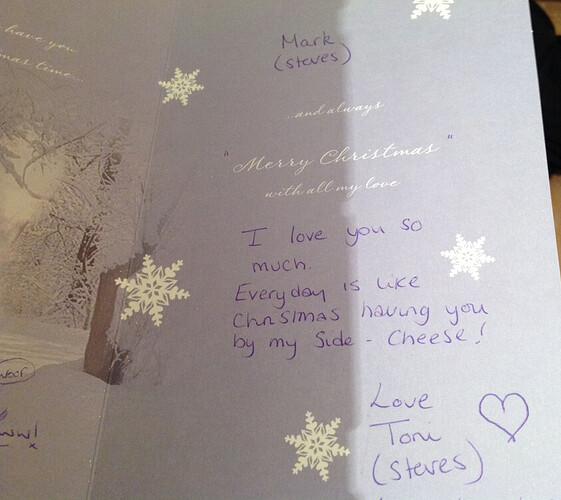 have you
mas time...
Mark
(steves)
...and always
"Merry Christmas"
with all my love
I love you so
much.
Everyday is like
Chrisimas having you
by my side - Cheese!
woof
ww!
x
Love
Toni
(steves)